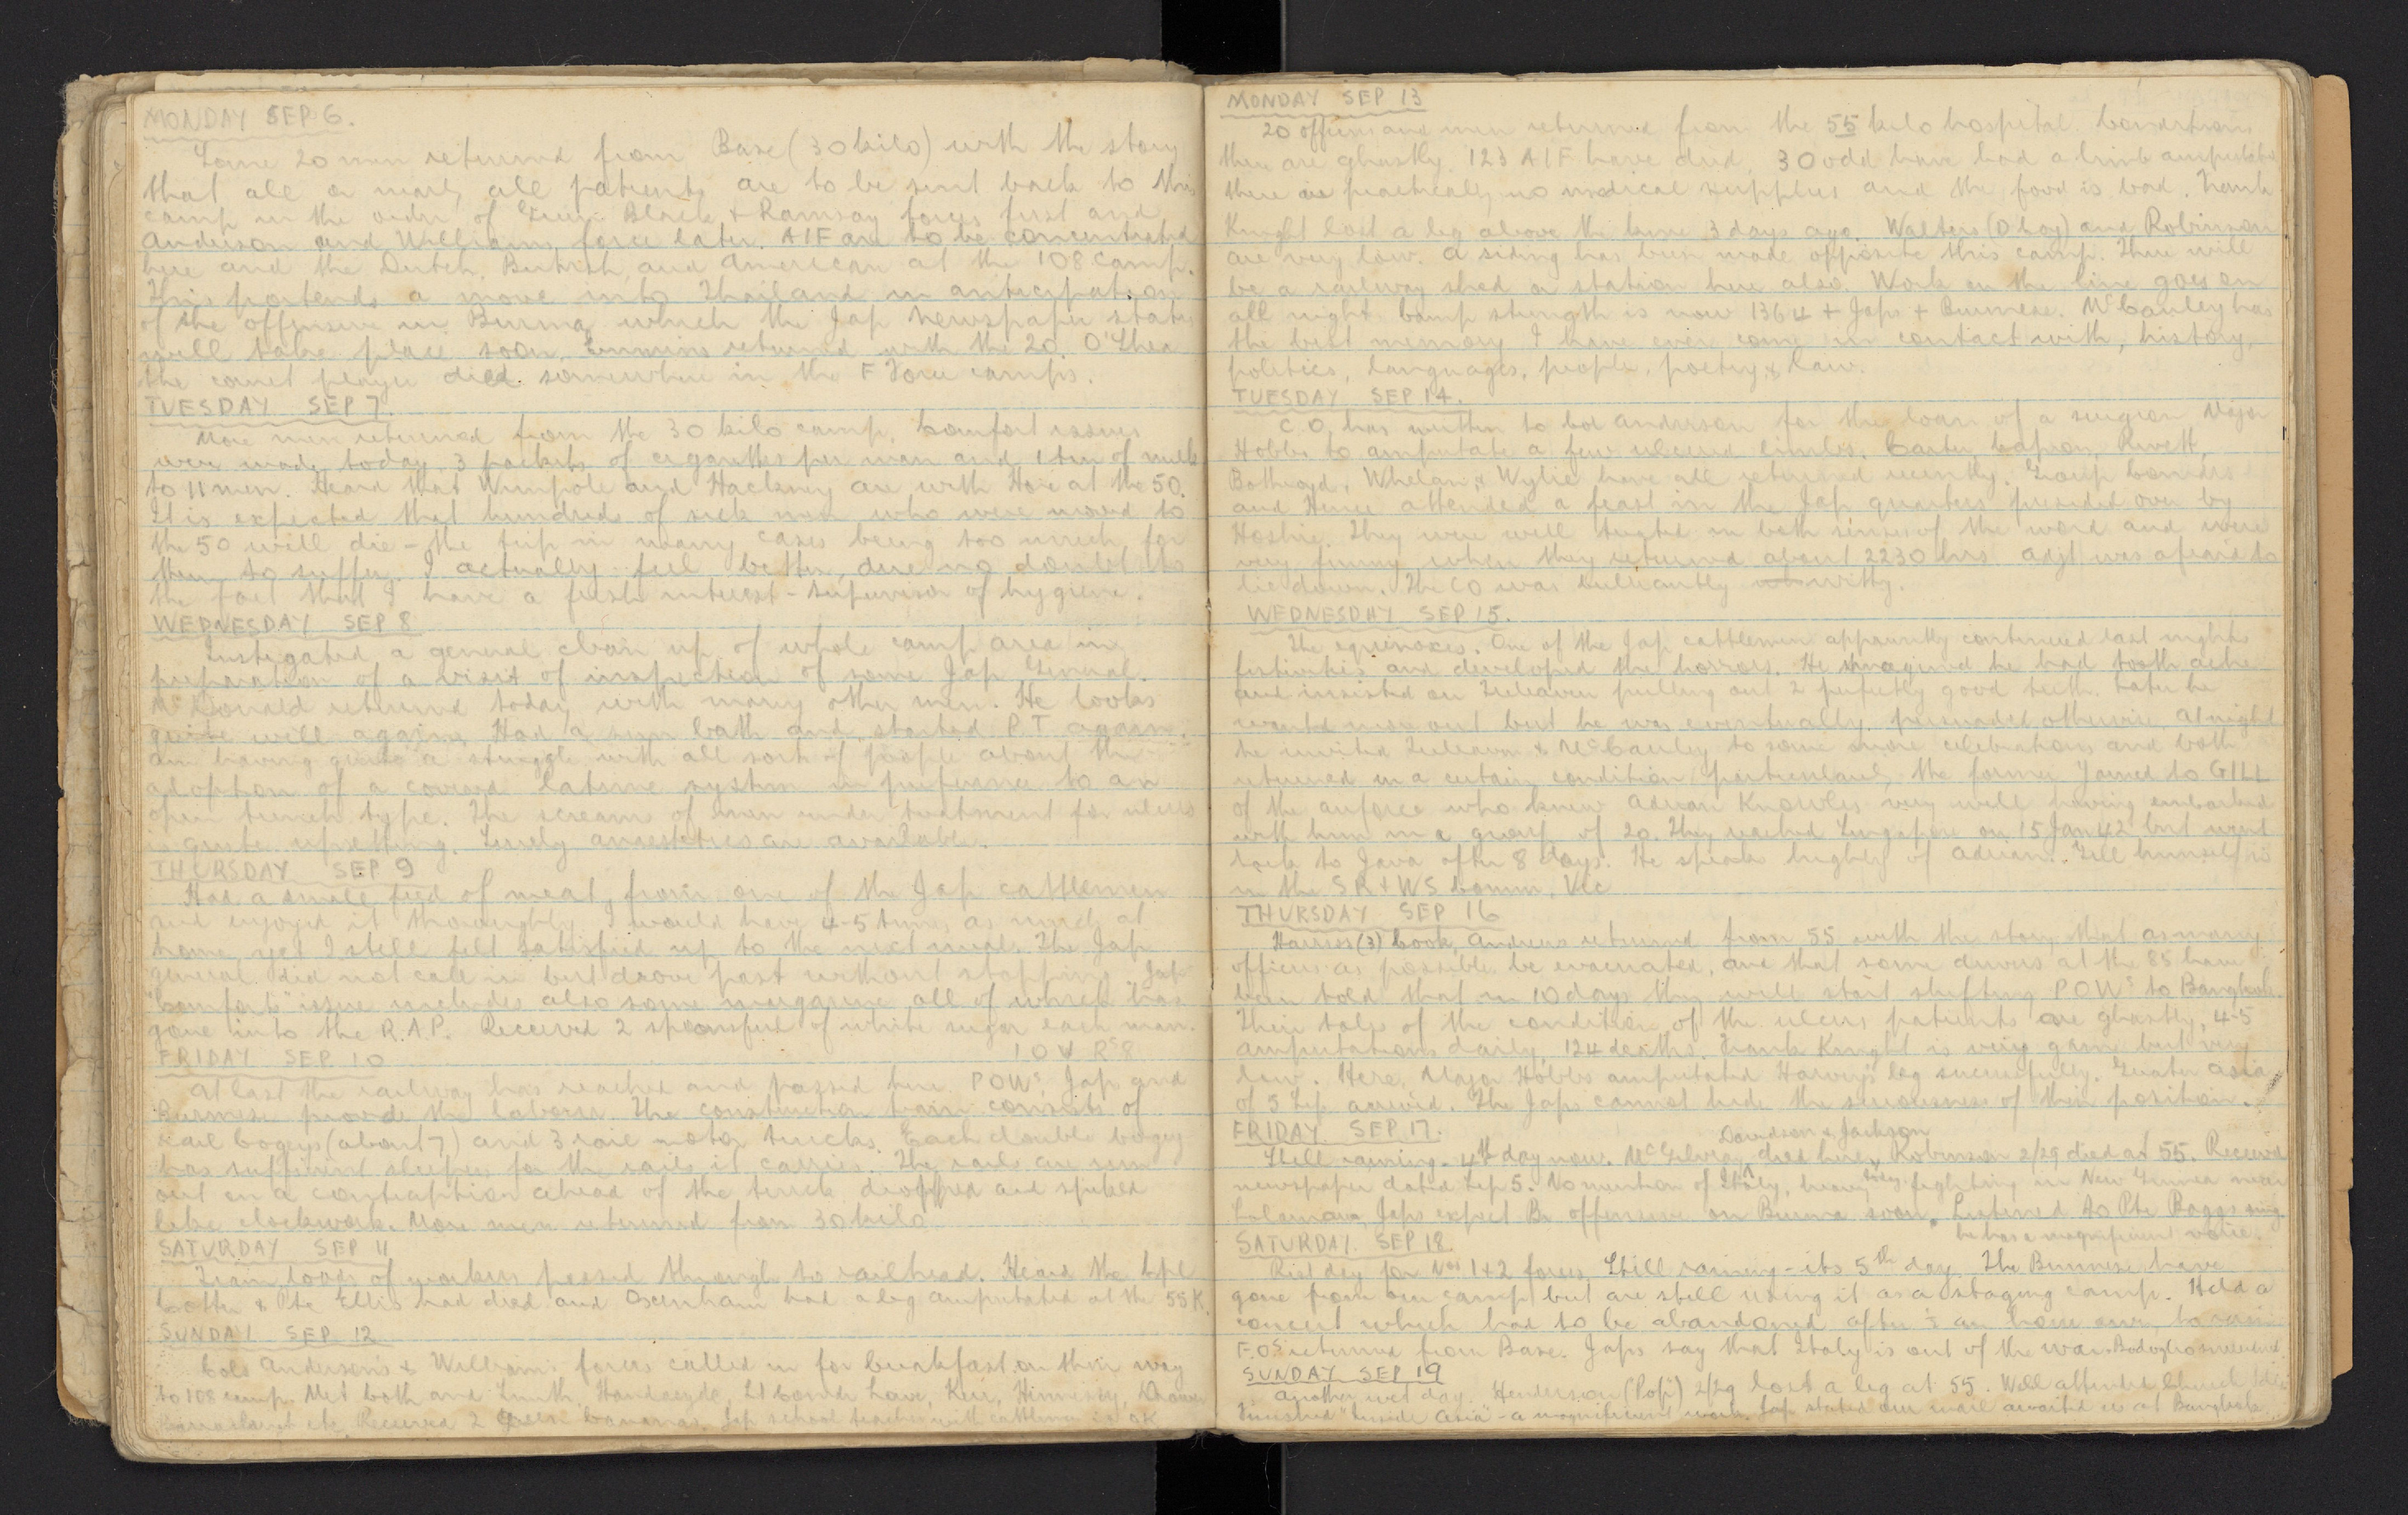 MONDAY SEP 6.
Some 20 men returned from Base (30 kilo) with the story
that all or nearly all patients are to be sent back to this
camp in the order of Green Black & Ramsay forces first and
Anderson and Williams force later. AIF are to be concentrated
here and the Dutch, British, and American at the 108 camp.
This portends a move into Thailand in anticipation
of the offensive in Burma which the Jap newspaper states
will take place soon. Cummins returned with the 20. O'Shea
the cornet player died somewhere in the F Force camps.
TUESDAY SEP 7.
More men returned from the 30 kilo camp. Comfort issues
were made today. 3 packets of cigarettes per man and 1 tin of milk
to 11 men. Heard that Wimpole and Hackney are with Hore at the 50.
It is expected that hundreds of sick men who were moved to
the 50 will die - the trip in many cases being too much for
them to suffer. I actually feel better, due no doubt to
the fact that I have a fresh interest - supervisor of hygiene.
WEDNESDAY SEP 8
Instigated a general clean up of whole camp area in
preparation of a visit of inspection of some Jap General.
McDonald returned today with many other men. He looks
quite well again. Had a sun bath and started P.T. again.
Am having quite a struggle with all sorts of people about the
adoption of a covered latrine system in preference to an
open trench type. The screams of men under treatment for ulcers
is quite upsetting. Surely anaesthetics are available.
THURSDAY SEP 9
Had a small feed of meat from one of the Jap cattlemen
and enjoyed it thoroughly. I would have 4-5 times as much at
home, yet I still felt satisfied up to the next meal. The Jap
general did not call in but drove past without stopping. Jap
"Comforts" issue includes also some margarine all of which has
gone into the R.A.P. Received 2 spoonsful of white sugar each man.
FRIDAY SEP 10
At last the railway has reached and passed here. POWs, Jap and
Burmese provide the labour. The construction train consists of
rail bogeys (about 7) and 3 rail motor trucks. Each double bogey
has sufficient sleepers for the rails it carries. The rails are run
out on a contraption ahead of the truck dropped and spiked
like clockwork. More men returned from 30 kilo
SATURDAY SEP 11
Train loads of workers passed through to railhead. Heard the Cpl
& Pte Ellis had died and had a leg amputated at the 55 K.
SUNDAY SEP 12
Cols Anderson's & Williams forces called in for breakfast on their way
to 108 camp. Met both and Smith, Lt Love, Kerr, Hinnissy,
etc. Received 2 green bananas. Jap school teacher with cattlemen is OK
MONDAY SEP 13
20 officers and men returned from the 55 kilo hospital. Conditions
there are ghastly. 123 AIF have died, 30 odd have had a limb amputated
there are practically no medical supplies and the food is bad. Frank
Knight lost a leg above the knee 3 days ago. Walters (D Coy) and Robinson
are very low. A siding has been made opposite this camp. There will
be a railway shed or station here also. Work on the line goes on
all night. Camp strength is now 1364 + Japs + Burmese. McCauley has
the best memory I have ever come in contact with, history,
politics, languages, people, poetry & law.
TUESDAY SEP 14.
C.O. has written to Col Anderson for the loan of a surgeon Major
Hobbs to amputate a few ulcered limbs. Carter, Capron, Rivett,
Bothroyd, Whelan, & Wylie have all returned recently. Group Comdrs
and Hence attended a feast in the Jap quarters presided over by
Hoshie. They were well tucked in both senses of the word and were
very funny when they returned about 2230 hrs. Adjt was afraid to
lie down. The CO was brilliantly witty.
WEDNESDAY SEP 15.
The equinoxes. One of the Jap cattlemen apparently continued last nights
festivities and developed the horrors. He imagined he had tooth ache
and insisted on Treleaven pulling out 2 perfectly good teeth. Later he
wanted more out but he was eventually persuaded otherwise. At night
he invited Treleaven & McCauley to some more celebrations and both
returned in a certain condition particularly the former. Yarned to GILL
of the airforce who knew Adrian Knowles very well having embarked
with him in a group of 20. They reached Singapore on 15 Jan 42 but went
back to Java after 8 days. He speaks highly of Adrian. Gill himself is
in the SR & WS Comm, Vic
THURSDAY SEP 16
Harriss (3) Cook, Andrews returned from 55 with the story that as many
officers as possible be evacuated, and that some drivers at the 85 have
been told that in 10 days they will start shifting POWs to Bangkok.
Their tales of the condition of the ulcers patients are ghastly, 4-5
amputations daily, 124 deaths. Frank Knight is very game but very
low. Here, Major Hobbs amputated Harvey's leg successfully. Greater Asia
of 5 Sep arrived. The Japs cannot hide the seriousness of their position.
FRIDAY SEP 17.
Davidson & Jackson
Still raining - 4th day now. McGilvray died here today, Robinson 2/29 died at 55. Received
newspaper dated Sep 5. No mention of Italy, heavy fighting in New Guinea near
Salamaua. Japs expect Br offensive on Burma soon. Listened to Pte Boggs sing
he has a magnificent voice.
SATURDAY SEP 18.
Rest day for Nos 1 & 2 forces. Still raining - its 5th day. The Burmese have
gone from our camp but are still using it as a staging camp. Held a
concert which had to be abandoned after ½ an hour owing to rain.
F.Os returned from Base. Japs say that Italy is out of the war. Badoglio surrendered.
SUNDAY SEP 19
Another wet day. Henderson (Pop) 2/29 lost a leg at 55. Well attended Church
Finished "Inside Asia" - a magnificent work. Jap stated our mail awaited us at Bangkok